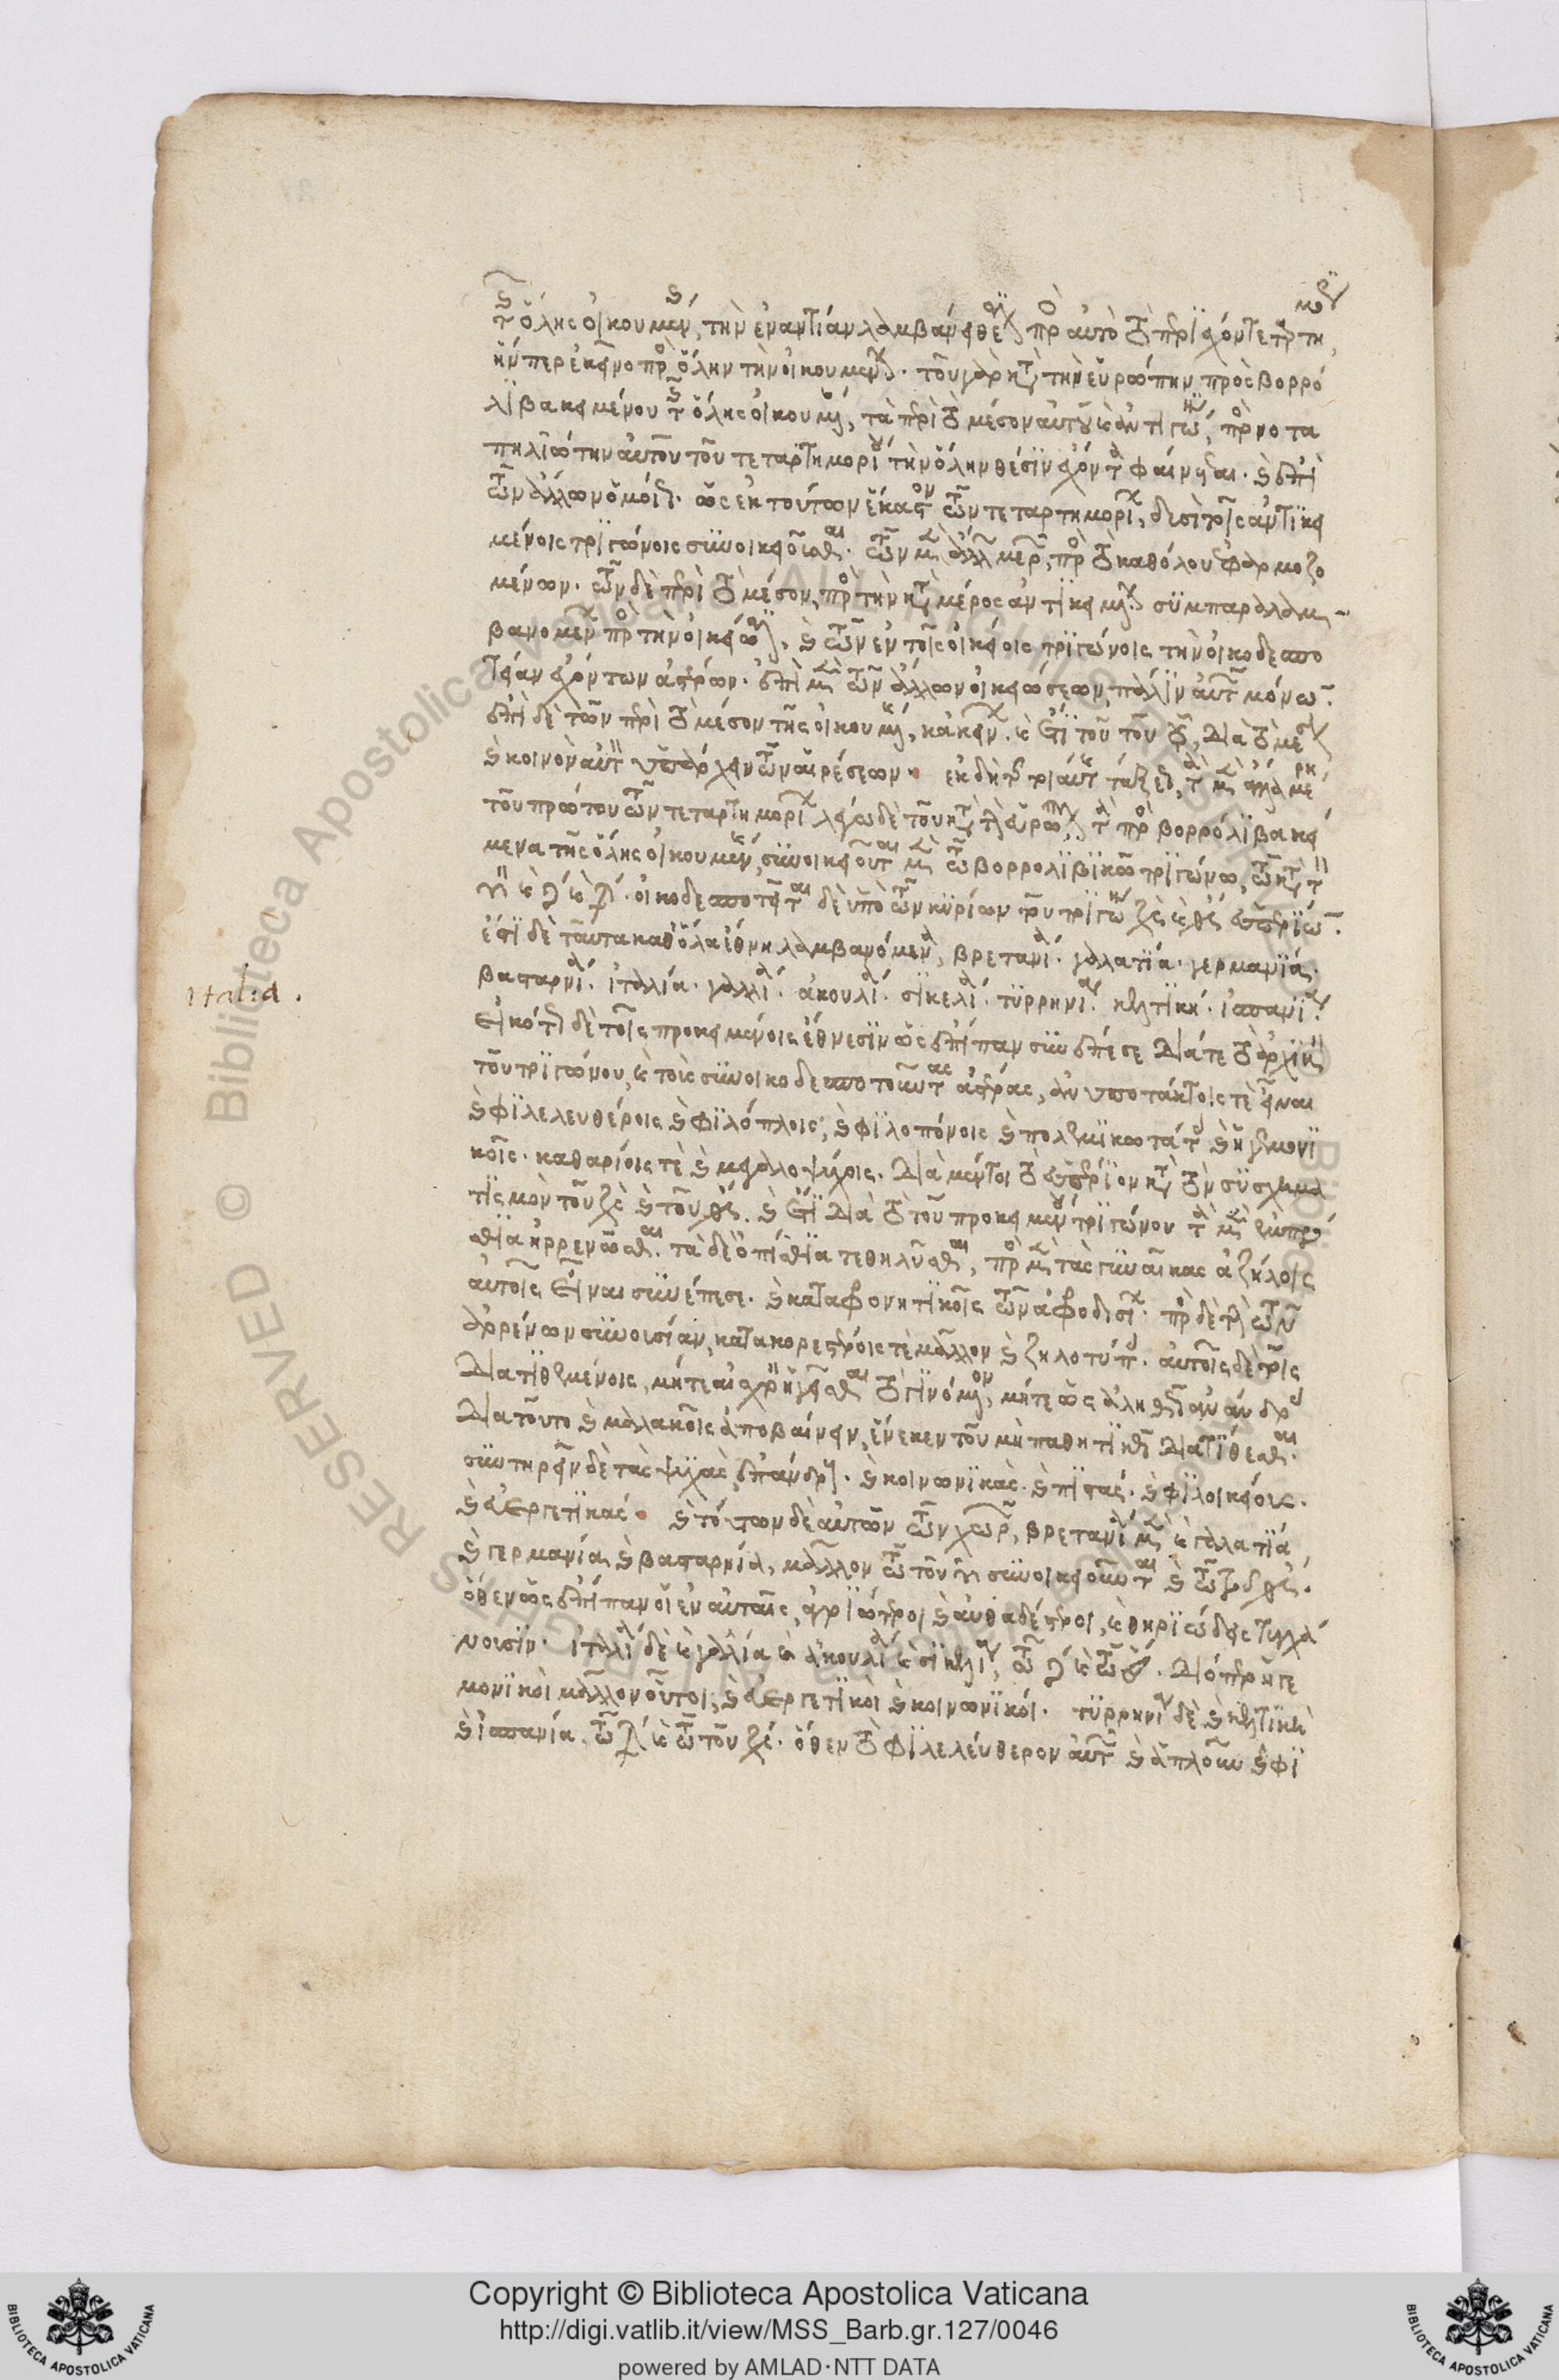 τῆς ὅλης οἰκουμένης, τὴν ἐναντίαν λαμβάνει θέσιν πρὸς αὐτὸ τὸ περιέχον τεταρτημόριον
ἥνπερ ἐκεῖνο πρὸς ὅλην τὴν οἰκουμένην. τοῦ γὰρ κατὰ τὴν εὐρώπην πρὸς βορρό
λιβα κειμένου τῆς ὅλης οἰκουμένης, τὰ περὶ τὸ μέσον αὐτοῦ καὶ ἀντιγώνια, πρὸς νοτα
πηλιώτην αὐτοῦ τοῦ τεταρτημορίου τὴν ὅλην θέσιν ἔχοντα φαίνεται. καὶ ἐπὶ
τῶν ἄλλων ὁμοίως. ὡς ἐκ τούτων ἕκαστον τῶν τεταρτημορίων, δυσὶ τοῖς ἀντικει
μένοις τριγώνοις συνοικειοῦσθαι. τῶν μὲν ἄλλων μερῶν, πρὸς τὸ καθόλου ἐφαρμοζο
μένων. τῶν δὲ περὶ τὸ μέσον, πρὸς τὴν κατὰ μέρος ἀντικειμένην συμπαραλαμ
βανομένων πρὸς τὴν οἰκείωσιν, καὶ τῶν ἐν τοῖς οἰκείοις τριγώνοις τὴν οἰκοδεσπο
τείαν ἐχόντων ἀστέρων. ἐπὶ μὲν τῶν ἄλλων οἰκειώσεων, πάλιν αὐτῶν μόνων
ἐπὶ δὲ τῶν περὶ τὸ μέσον τῆς οἰκουμένης, κἀκείνων. καὶ ἔτι τοῦ τοῦ ☿, διὰ τὸ μέσον
καὶ κοινὸν αὐτὸν ὑπάρχειν τῶν αἱρέσεων. ἐκ δὴ τῆς τοιαύτης τάξεως, τὰ μὲν ἄλλα μέρη
τοῦ πρώτου τῶν τεταρτημορίων λέγω δὲ τοῦ κατὰ τὴν εὐρώπην, τὰ πρὸς βορρόλιβα κεί
μενα τῆς ὅλης οἰκουμένης, συνοικειοῦται μὲν τῷ βορρολιβικῷ τριγώνῳ, τῷ κατὰ τὸν
♈ καὶ ♌ καὶ ♐. οἰκοδεσποτεῖται δὲ ὑπὸ τῶν κυρίων τοῦ τριγώνου ♃ καὶ ♂ ἑσπερίων
ἔστι δὲ ταῦτα καθ᾽ ὅλα ἔθνη λαμβανόμενα, βρετανία. γαλατία. γερμανία.
βασταρνία. ἰταλία. γαλλία. ἀπουλία. σικελία. τυρρηνία. κελτική. ἱσπανία.
εἰκότως δὲ τοῖς προκειμένοις ἔθνεσιν ὡς ἐπίπαν συνέπεσε διά τε τὸ ἀρχικὸν
τοῦ τριγώνου, καὶ τοὺς συνοικοδεσποτοῦντας ἀστέρας, ἀνυποτάκτοις τε εἶναι
καὶ φιλελευθέροις καὶ φιλόπλοις, καὶ φιλοπόνοις καὶ πολεμικωτάτοις καὶ ἡγεμονι
κοῖς. καθαρίοις τε καὶ μεγαλοψύχοις. διὰ μέντοι τὸ ἑσπέριον κατὰ τὸν συσχημα
τισμὸν τοῦ ♃ καὶ τοῦ ♂. καὶ ἔτι διὰ τὸ τοῦ προκειμένου τριγώνου τὰ μὲν ἐμπρό
σθια ἠρρενῶσθαι. τὰ δὲ ὀπίσθια τεθηλῦσθαι, πρὸς μὲν τὰς γυναῖκας ἀζήλοις
αὐτοῖς εἶναι συνέπεσε. καὶ καταφρονητικοῖς τῶν ἀφροδισίων. πρὸς δὲ τὴν τῶν
ἀρρένων συνουσίαν, κατακορεστέροις τε μᾶλλον καὶ ζηλοτύποις. αὐτοῖς δὲ τοῖς
διατιθεμένοις, μήτε αἰσχρὸν ἡγεῖσθαι τὸ γινόμενον, μήτε ὡς ἀληθῶς ἀνάνδροις
διὰ τοῦτο καὶ μαλακοῖς ἀποβαίνειν, ἕνεκεν τοῦ μὴ παθητικῶς διατίθεσθαι.
συντηρεῖν δὲ τὰς ψυχὰς ἐπάνδρους. καὶ κοινωνικὰς. καὶ πιστάς. καὶ φιλοικείους.
καὶ εὐεργετικάς. καὶ τούτων δὲ αὐτῶν τῶν χωρῶν, βρετανία μὲν καὶ γαλατία
καὶ γερμανία καὶ βασταρνία, μᾶλλον τῷ τοῦ ♈ συνοικειοῦνται καὶ τῷ τοῦ ♂.
ὅθεν ὡς ἐπίπαν οἱ ἐν αὐταῖς, ἀγριώτεροι καὶ αὐθαδέστεροι, καὶ θηριώδεις τυγχά
νουσιν. ἰταλία δὲ καὶ γαλλία καὶ ἀπουλία καὶ σικελία, τῷ ♌ καὶ τῷ ☉. διόπερ ἡγε
μονικοὶ μᾶλλον οὗτοι, καὶ εὐεργετικοὶ καὶ κοινωνικοί. τυρρηνία δὲ καὶ κελτικὴ
καὶ ἱσπανία. τῷ ♐ καὶ τῷ τοῦ ♃. ὅθεν τὸ φιλελεύθερον αὐτῶν καὶ ἁπλοῦν καὶ φι
Italia.
Copyright © Biblioteca Apostolica Vaticana
http://digi.vatlib.it/view/MSS_Barb.gr.127/0046
powered by AMLAD·NTT DATA